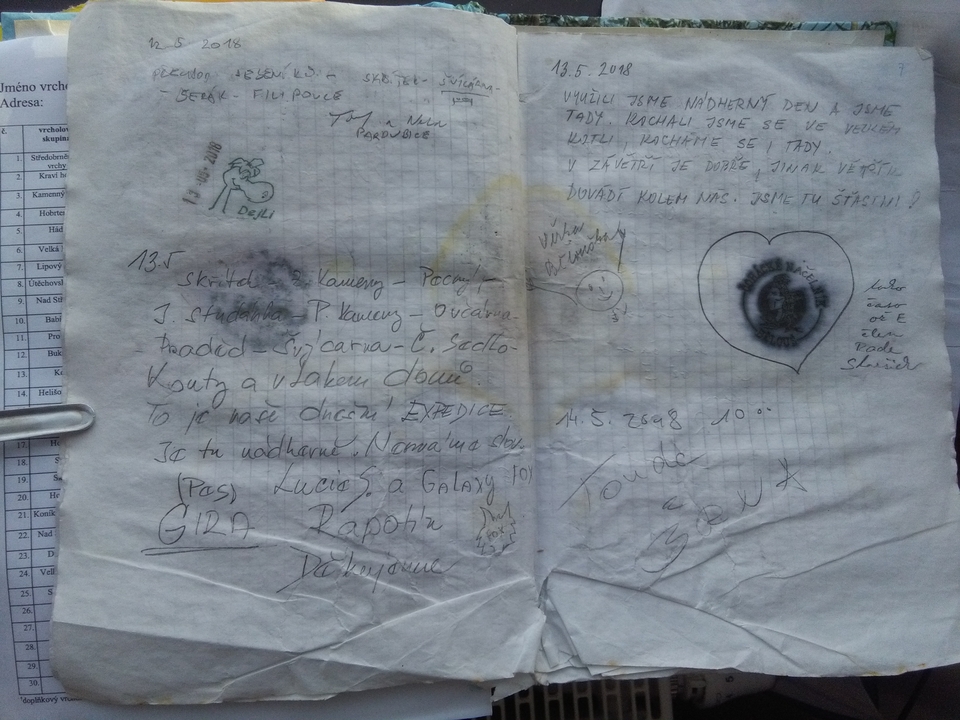 Jméno vrcho
Adresa:
č.
vrcholov
skupina
1. Středobrně
vrchy
2. Kraví ho
3. Kamenný
4. Hobrte
5. Hád
6. Velká
7. Lipový
8. Útěchova
9. Nad Stř
10. Babí
11. Pro
12. Buk
13. Ko
14. Helišo
17. H
18. S
19. Š
20. Ho
21. Koník
22. Nad
23. D
24. Velk
25. S
26.
27.
28.
29.
30.
doplňkový vrc
12 5 2018
PŘECHOD JESENÍKŮ - SKŘÍTEK - ŠVÝCÁRNA -
- ŠERÁK - FILIPOVCE
PARDUBICE
13 -05- 2018
DEJLI
13.5
Skřítek - Z. Kameny - Pecný -
J studánka - P. Kameny - Ovčárna -
- Praděd - Švýcárna - Č. Sedlo -
Kouty a vlakem domů.
To je naše dnešní EXPEDICE.
Je tu nádherně. Nemáme slov.
(Pes) Lucie S. a GALAXY
GIRA Rapotín
Děkujeme
13.5.2018
7
VYUŽILI JSME NÁDHERNÝ DEN A JSME
TADY. KACHALI JSME SE VE VELKÉM
KOTLI, KACHÁME SE I TADY.
V ZÁVĚTŘÍ JE DOBŘE, JINAK VĚTŘÍK
DOVÁDÍ KOLEM NÁS. JSME TU ŠŤASTNÍ!
14.5. 2018 10 00
Tonda
a